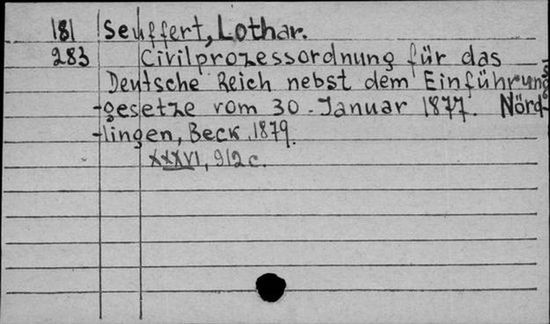 181 Seuffert, Lothar.
283 Civilprozessordnung für das
Deutsche Reich nebst dem Einführung-
-gesetze vom 30. Januar 1877. Nörd-
-lingen, Beck. 1879.
XXXVI, 912 c.